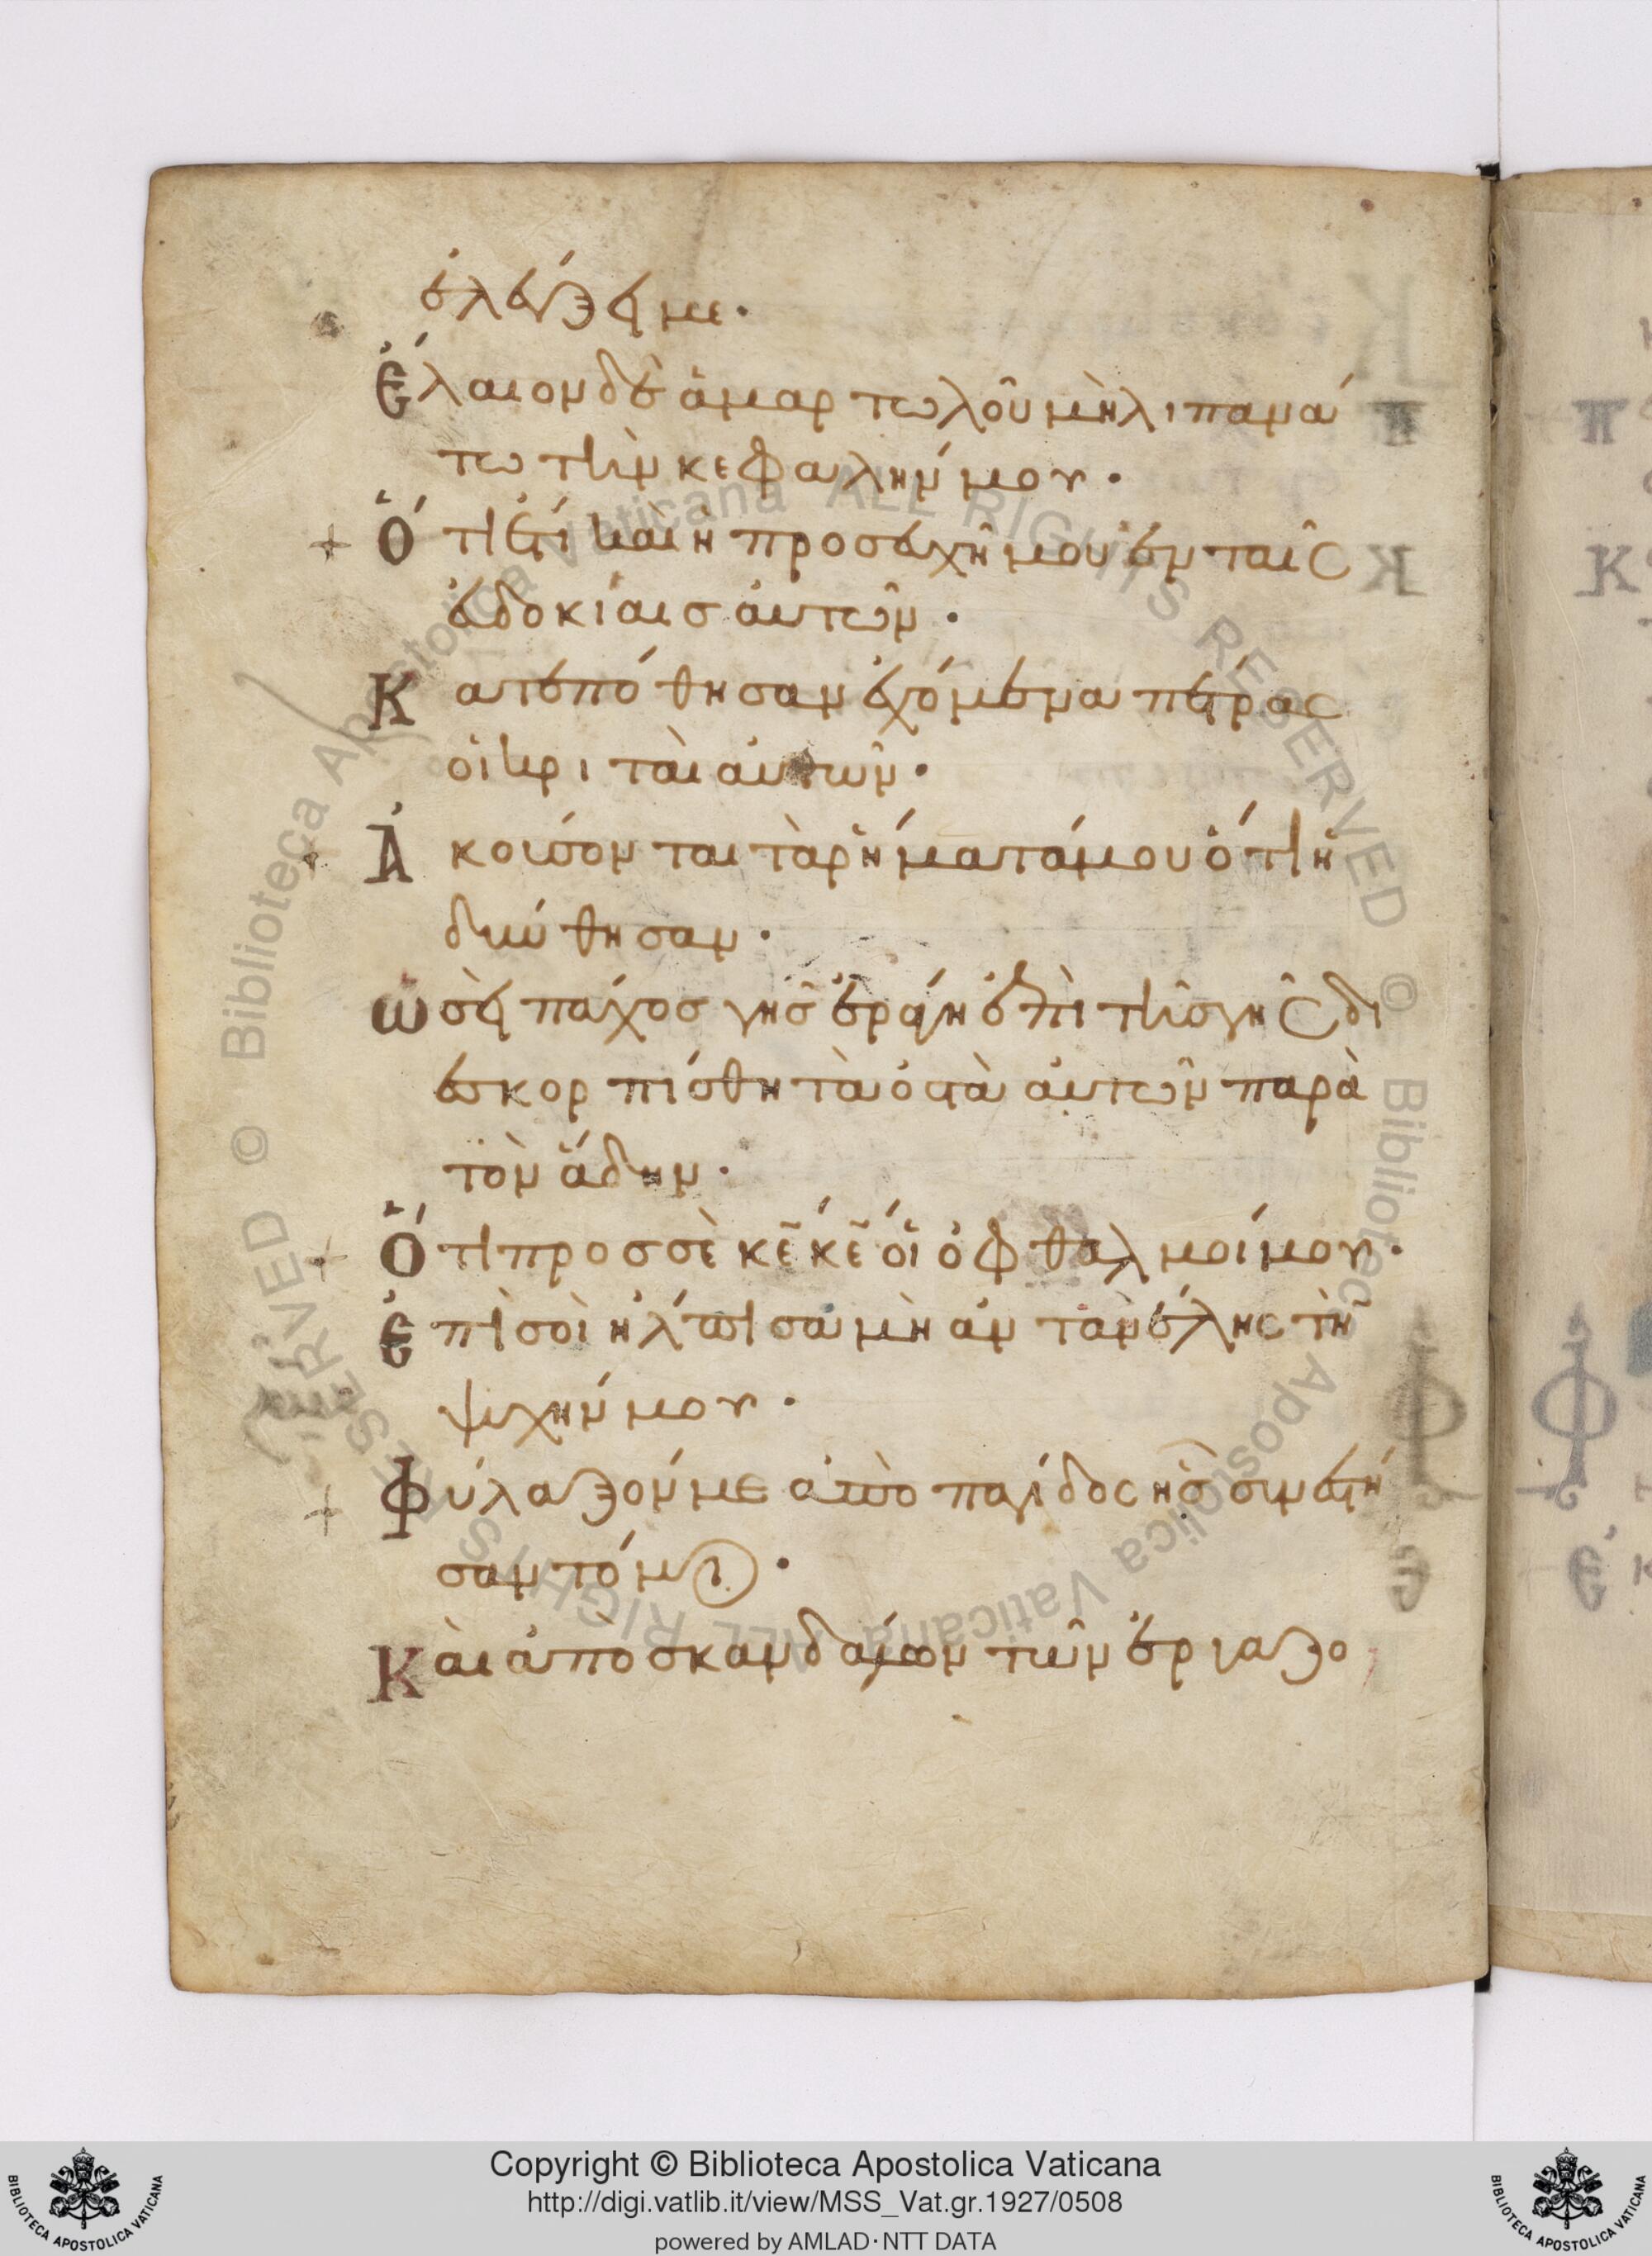 ἐλέγξει με·
Ἔλαιον δὲ ἁμαρτωλοῦ μὴ λιπανά
τω τὴν κεφαλήν μου·
Ὅτι ἔτι καὶ ἡ προσευχῆ μου ἐν ταῖς
ἐυδοκίαισ ἀυτῶν·
Κατεπόθησαν ἐχόμενα πέτρας
οἱ κριταὶ ἀυτῶν·
Ἀκούσονται τὰ ῥήματά μου ὅτι ἡ
δύνθησαν·
ὡσεὶ πάχοσ γῆσ ἐράγη ἐπὶ τῆσ γῆς δι
εσκορπίσθη τὰ ὀστὰ ἀυτῶν παρὰ
τὸν ἅδην·
Ὅτι προσ σὲ κε κε οἱ ὀφθαλμοί μου·
Ἐπὶ σοὶ ἤλπισα μὴ ἀντανέλης τὴ
ψυχήν μου·
Φύλαξόν με ἀπὸ παγίδος ησ συνεστή
σαντό μοι·
Κὰι ἀπὸ σκανδάλων τῶν ἐργαζο
Copyright © Biblioteca Apostolica Vaticana
http://digi.vatlib.it/view/MSS_Vat.gr.1927/0508
powered by AMLAD·NTT DATA
BIBLIOTECA APOSTOLICA VATICANA
BIBLIOTECA APOSTOLICA VATICANA
© Biblioteca Apostolica Vaticana ALL RIGHTS RESERVED © Biblioteca Apostolica Vaticana ALL RIGHTS RESERVED